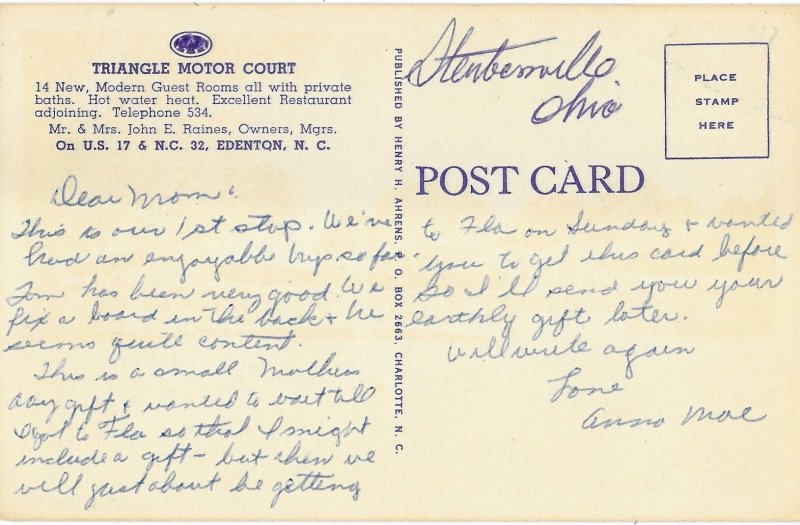 TRIANGLE MOTOR COURT
14 New, Modern Guest Rooms all with private
baths. Hot water heat. Excellent Restaurant
adjoining. Telephone 534.
Mr. & Mrs. John E. Raines, Owners, Mgrs.
On U.S. 17 & N.C. 32, EDENTON, N. C.
Dear Mom:
This is our 1st stop. We've
had an enjoyable trip so far
Tom has been very good. We
fix a board in the back & he
seems quite content.
This is a small Mothers
day gift & wanted to wait till
I got to Fla so that I might
include a gift - but then we
will just about be getting
PUBLISHED BY HENRY H. AHRENS, P. O. BOX 2663, CHARLOTTE, N. C.
Steubenville
Ohio
PLACE
STAMP
HERE
POST CARD
to Fla on Sunday & wanted
you to get this card before
so I'll send you your
earthly gift later.
Will write again
Love
Anna Mae